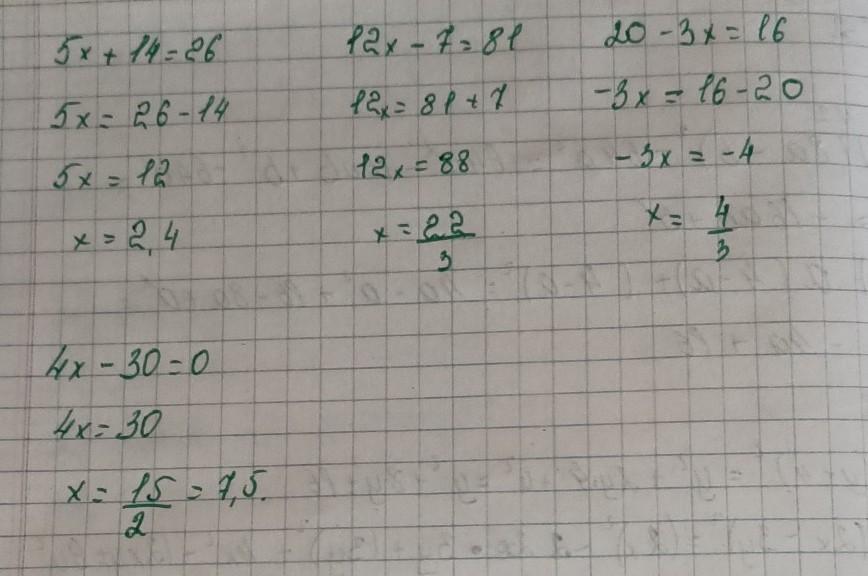 5x + 14 = 26
5x = 26 - 14
5x = 12
x = 2,4
12x - 7 = 81
12x = 81 + 7
12x = 88
x = 22/3
20 - 3x = 16
-3x = 16 - 20
-3x = -4
x = 4/3
4x - 30 = 0
4x = 30
x = 15/2 = 7,5.